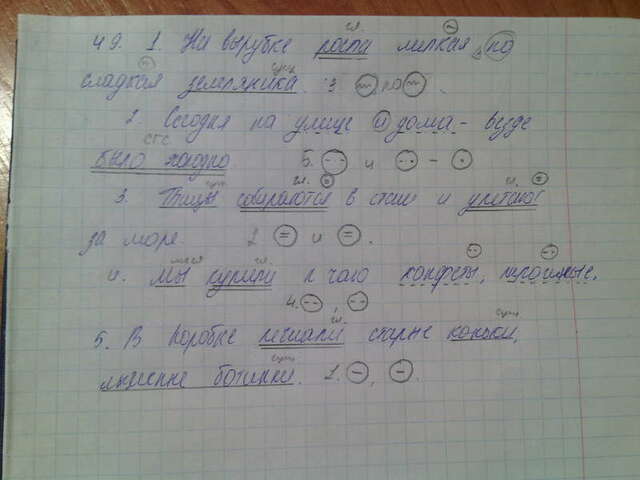 49. 1. На вырубке росла мелкая, но
сладкая земляника. 3 но.
2. Сегодня на улице и дома - везде
было холодно 5. и -
3. Птицы собираются в стаи и улетают
за море. 2 и .
4. Мы купили к чаю конфеты, пирожные.
4. ,
5. В коробке лежали старые коньки,
лыжные ботинки. 1. , .